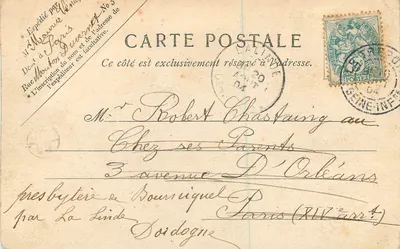 CARTE POSTALE
Ce côté est exclusivement réservé à l'adresse.
Expédié par
Paris
N° 3
L'inscription du nom et de l'adresse de
l'expéditeur est facultative.
20
04
04
SEINE-INF
Mr Robert Chastaing au
Chez ses Parents
3 avenue D'Orléans
presbytère de Bourniquel
Paris (XIVe arrt)
par La Linde
Dordogne